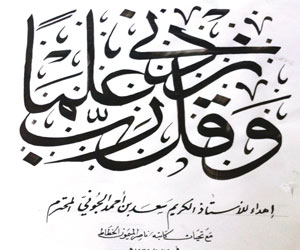 وَقُل رَّبِّ زِدْنِي عِلْمًا
إهداء للأستاذ الكريم سعيد بن أحمد الجوني المحترم
مع تحيات كاتبه ناصر الميمون الخطاط